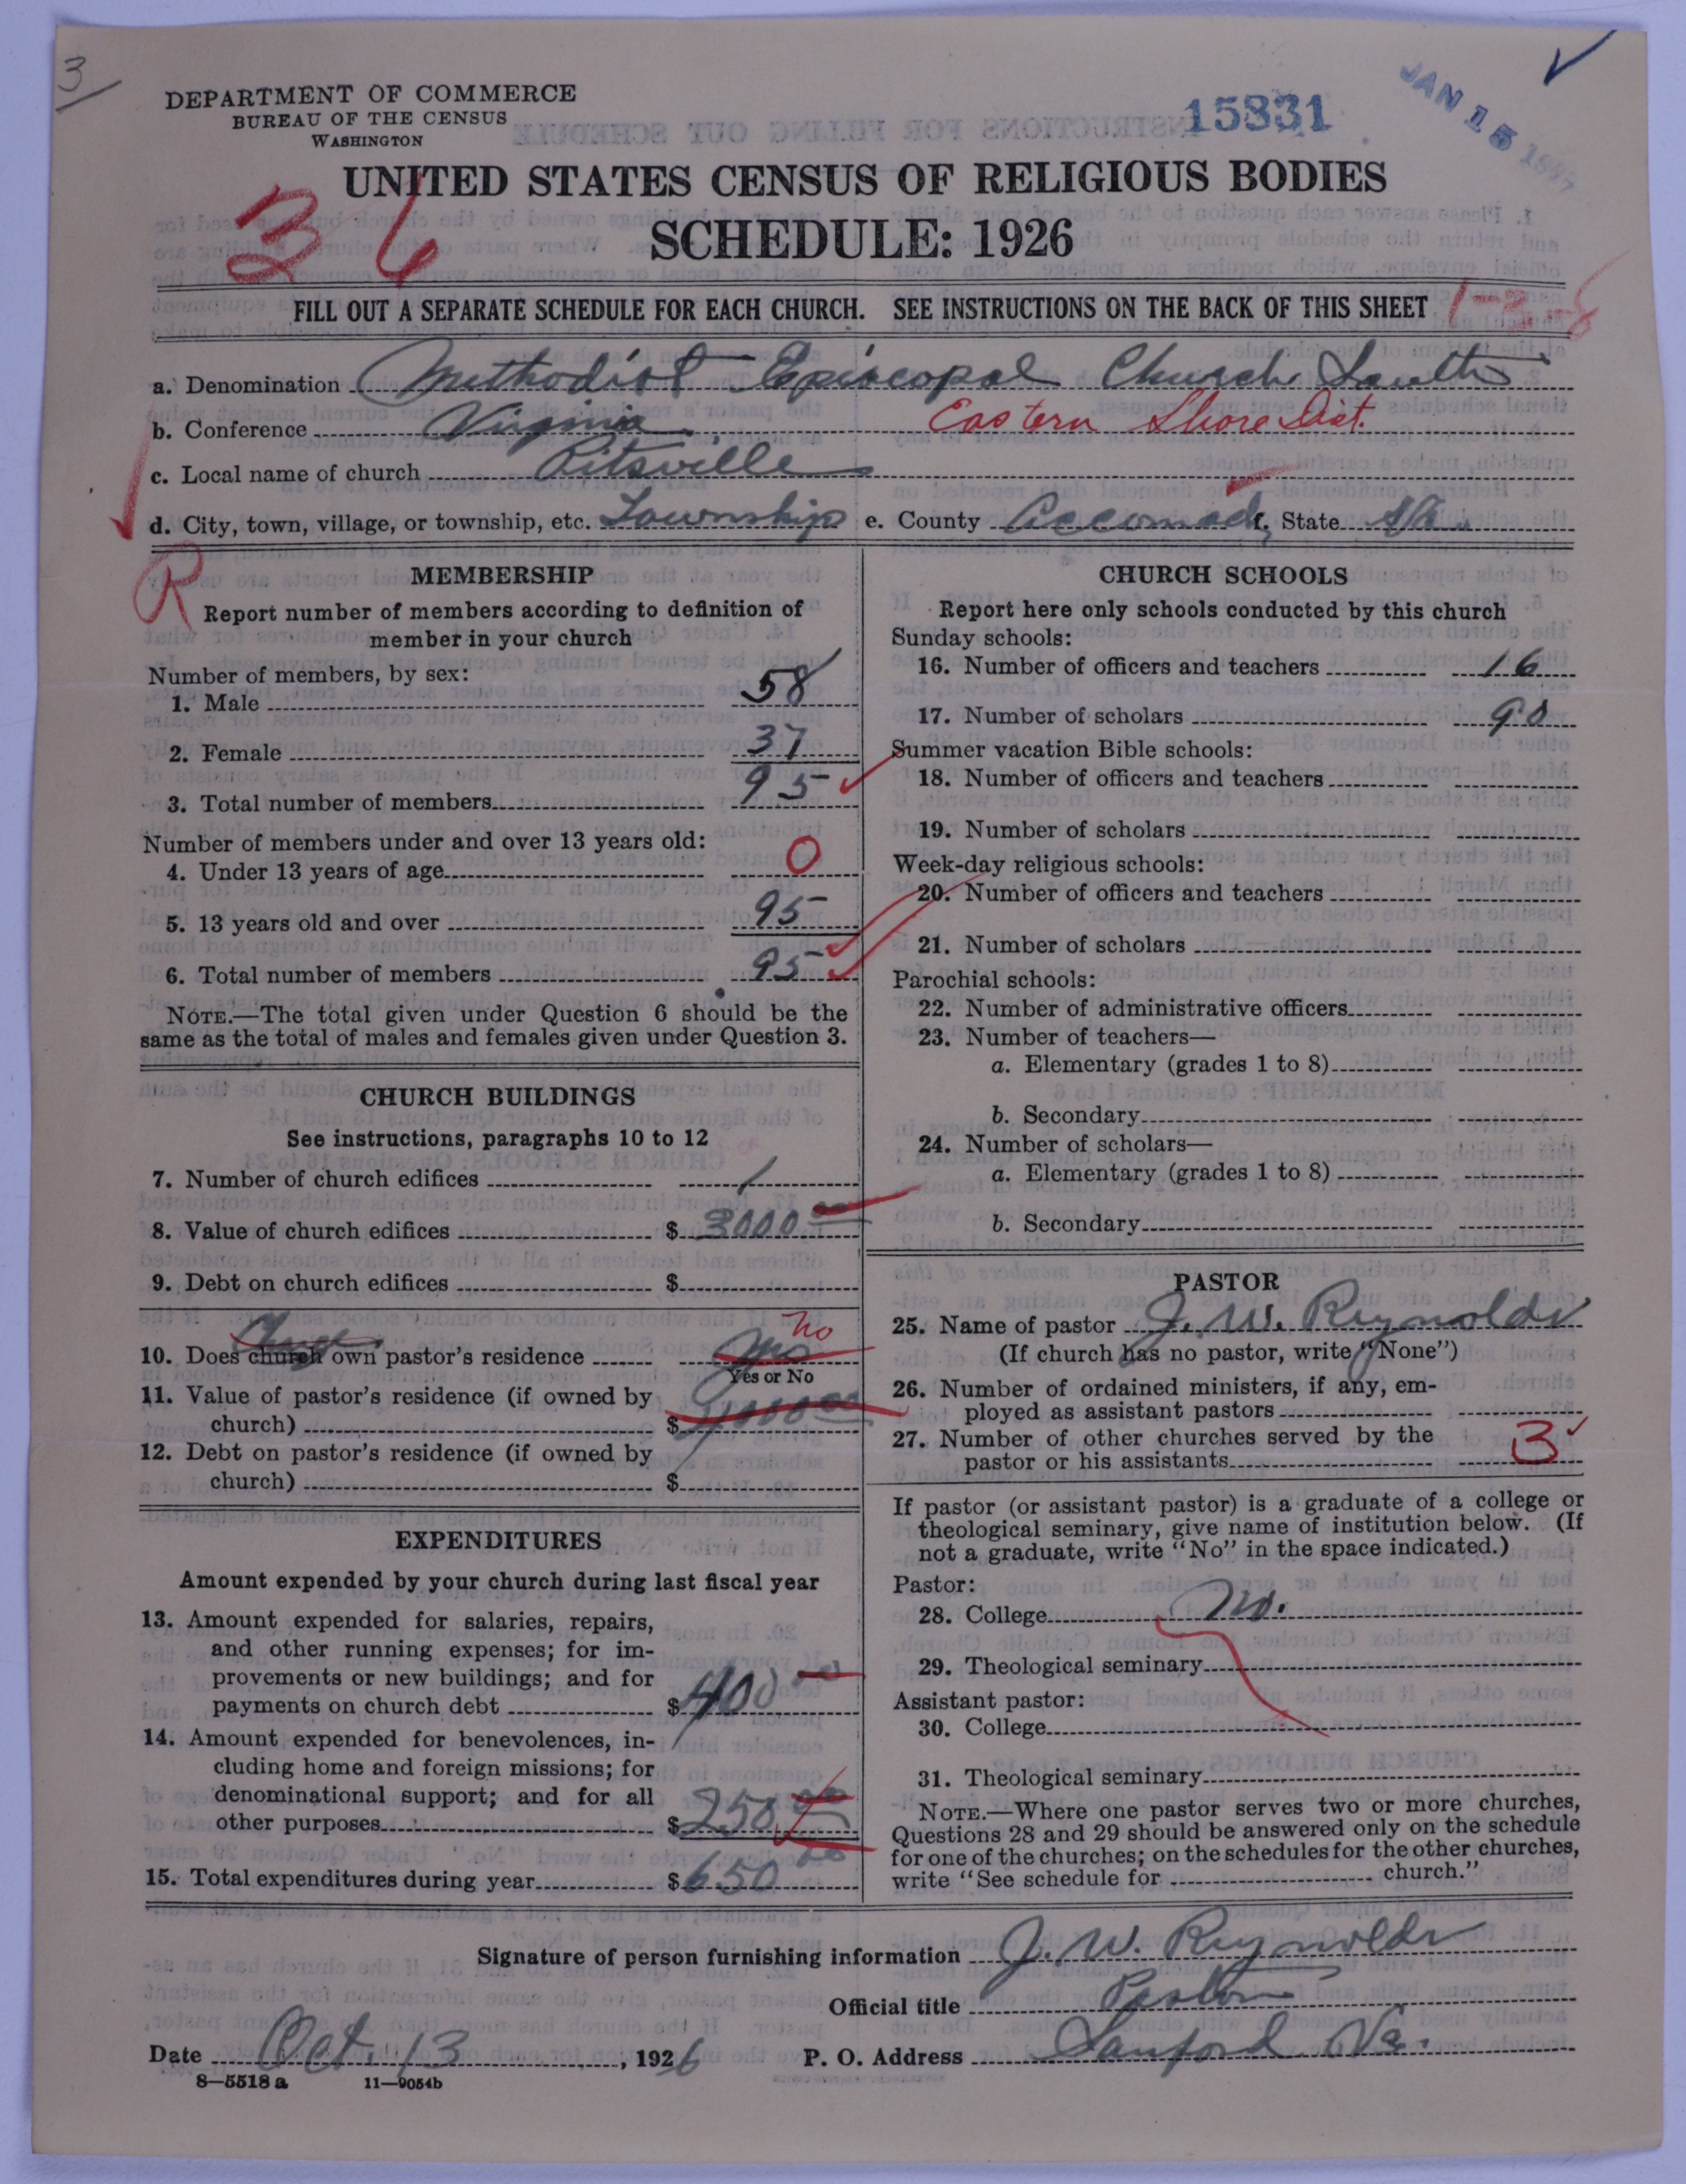 3
DEPARTMENT OF COMMERCE
BUREAU OF THE CENSUS
WASHINGTON
15331
JAN 15
UNITED STATES CENSUS OF RELIGIOUS BODIES
SCHEDULE: 1926
36
FILL OUT A SEPARATE SCHEDULE FOR EACH CHURCH. SEE INSTRUCTIONS ON THE BACK OF THIS SHEET
1-3-6
a. Denomination Methodist Episcopal Church South
b. Conference Virginia Eastern Shore Dist.
c. Local name of church Pitsville
d. City, town, village, or township, etc. Township e. County Accomack f. State Va.
R
MEMBERSHIP
Report number of members according to definition of
member in your church
Number of members, by sex:
1. Male 58
2. Female 37
3. Total number of members 95
Number of members under and over 13 years old:
4. Under 13 years of age 0
5. 13 years old and over 95
6. Total number of members 95
NOTE.—The total given under Question 6 should be the
same as the total of males and females given under Question 3.
CHURCH BUILDINGS
See instructions, paragraphs 10 to 12
7. Number of church edifices 1
8. Value of church edifices $ 3000 00
9. Debt on church edifices $
10. Does church own pastor's residence yes no
Yes or No
11. Value of pastor's residence (if owned by
church) $ 4000 00
12. Debt on pastor's residence (if owned by
church) $
EXPENDITURES
Amount expended by your church during last fiscal year
13. Amount expended for salaries, repairs,
and other running expenses; for im-
provements or new buildings; and for
payments on church debt $ 400 00
14. Amount expended for benevolences, in-
cluding home and foreign missions; for
denominational support; and for all
other purposes $ 250 00
15. Total expenditures during year $ 650 00
CHURCH SCHOOLS
Report here only schools conducted by this church
Sunday schools:
16. Number of officers and teachers 16
17. Number of scholars 90
Summer vacation Bible schools:
18. Number of officers and teachers
19. Number of scholars
Week-day religious schools:
20. Number of officers and teachers
21. Number of scholars
Parochial schools:
22. Number of administrative officers
23. Number of teachers—
a. Elementary (grades 1 to 8)
b. Secondary
24. Number of scholars—
a. Elementary (grades 1 to 8)
b. Secondary
PASTOR
25. Name of pastor J. W. Reynolds
(If church has no pastor, write "None")
26. Number of ordained ministers, if any, em-
ployed as assistant pastors
27. Number of other churches served by the
pastor or his assistants 3
If pastor (or assistant pastor) is a graduate of a college or
theological seminary, give name of institution below. (If
not a graduate, write "No" in the space indicated.)
Pastor:
28. College No.
29. Theological seminary
Assistant pastor:
30. College
31. Theological seminary
NOTE.—Where one pastor serves two or more churches,
Questions 28 and 29 should be answered only on the schedule
for one of the churches; on the schedules for the other churches,
write "See schedule for church."
Signature of person furnishing information J. W. Reynolds
Official title Pastor
Date Oct. 13, 1926 P. O. Address Sanford Va.
8—5518 a 11—9054b